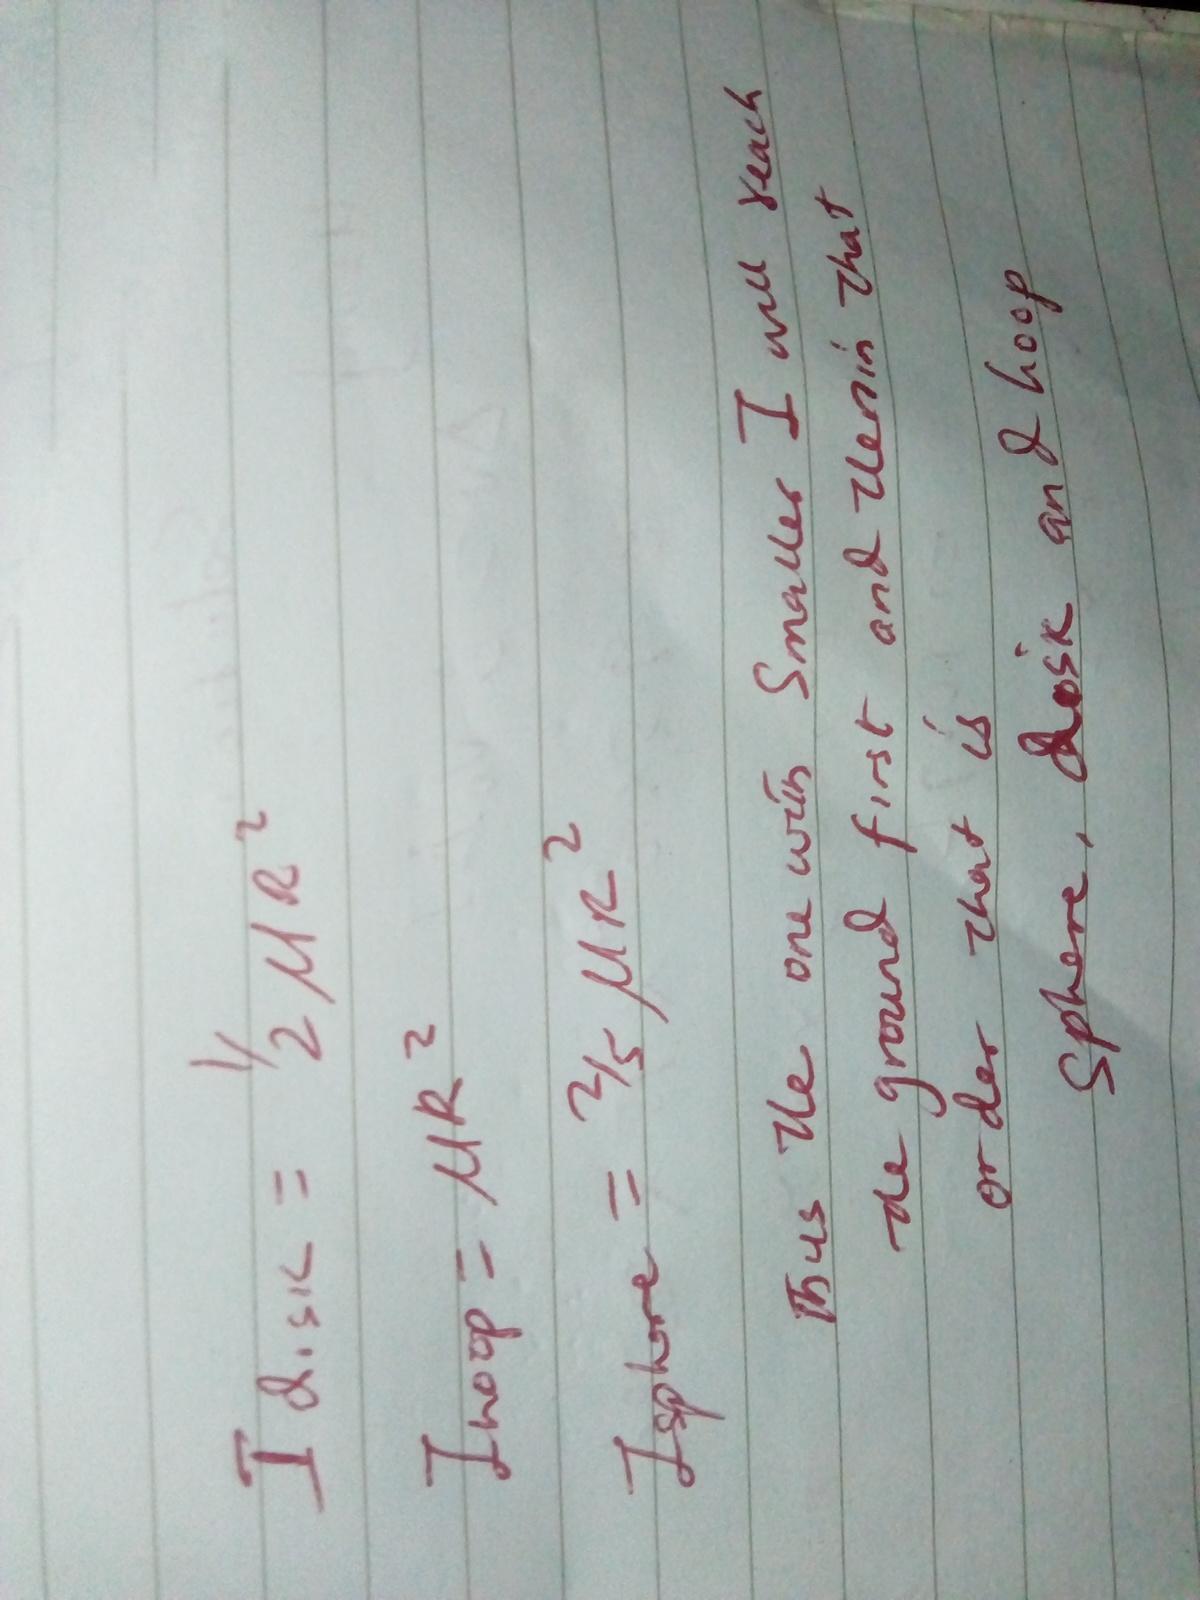 I disk = 1/2 MR²
I hoop = MR²
I sphere = 2/5 MR²
Thus the one with smaller I will reach
the ground first and then in that
order that is
Sphere, disk and hoop